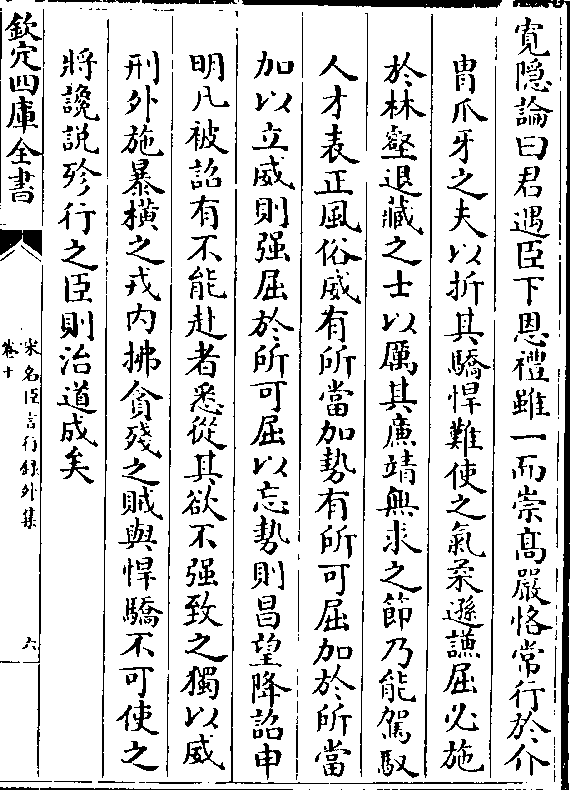 寛隠論曰君遇臣下恩禮雖一而崇髙嚴恪常行於介
胄爪牙之夫以折其驕悍難使之氣柔遜謙屈必施
於林壑退藏之士以厲其廉靖無求之節乃能駕馭
人才表正風俗威有所當加勢有所可屈加於所當
加以立威則强屈於所可屈以忘勢則昌望降詔申
明凡被詔有不能赴者悉從其欲不强致之獨以威
刑外施暴橫之戎内拂貪殘之賊與悍驕不可使之
將讒説殄行之臣則治道成矣
欽定四庫全書
宋名臣言行録外集
卷十
六